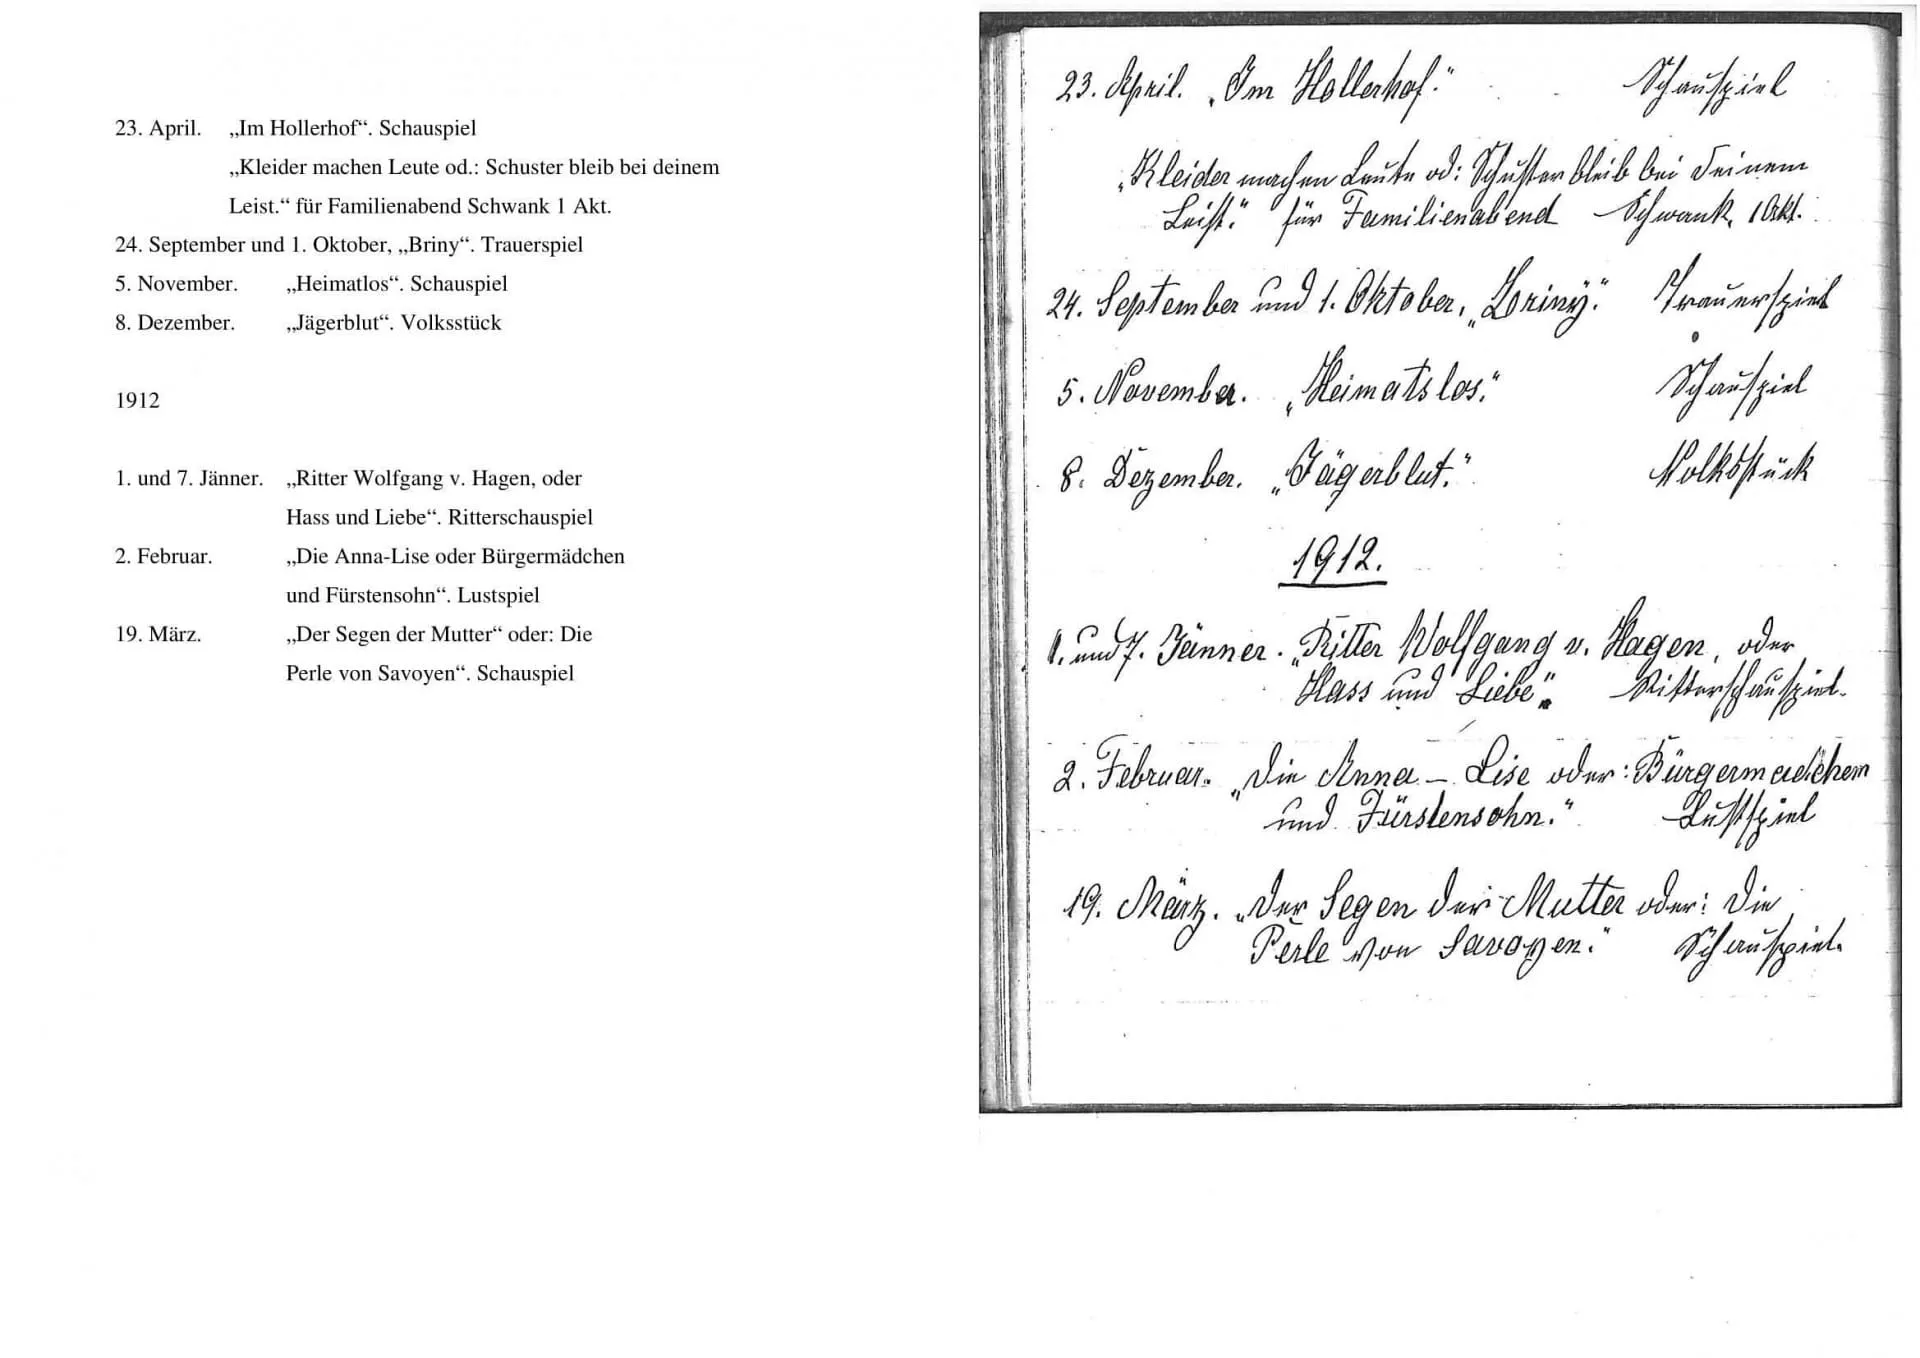 23. April. „Im Hollerhof“. Schauspiel
„Kleider machen Leute od.: Schuster bleib bei deinem
Leist.“ für Familienabend Schwank 1 Akt.
24. September und 1. Oktober, „Briny“. Trauerspiel
5. November. „Heimatlos“. Schauspiel
8. Dezember. „Jägerblut“. Volksstück
1912
1. und 7. Jänner. „Ritter Wolfgang v. Hagen, oder
Hass und Liebe“. Ritterschauspiel
2. Februar. „Die Anna-Lise oder Bürgermädchen
und Fürstensohn“. Lustspiel
19. März. „Der Segen der Mutter“ oder: Die
Perle von Savoyen“. Schauspiel
23. April. „Im Hollerhof.“ Schauspiel
„Kleider machen Leute od: Schuster bleib bei Deinem
Leist.“ für Familienabend Schwank. 1 Akt.
24. September und 1. Oktober. „Zriny.“ Trauerspiel
5. November. „Heimatslos.“ Schauspiel
8. Dezember. „Jägerblut.“ Volksstück
1912.
1. und 7. Jänner. „Ritter Wolfgang v. Hagen, oder
Hass und Liebe“. Ritterschauspiel.
2. Februar. „Die Anna – Lise oder: Bürgermädchen
und Fürstensohn.“ Lustspiel
19. März. „Der Segen der Mutter oder: Die
Perle von Savoyen.“ Schauspiel.